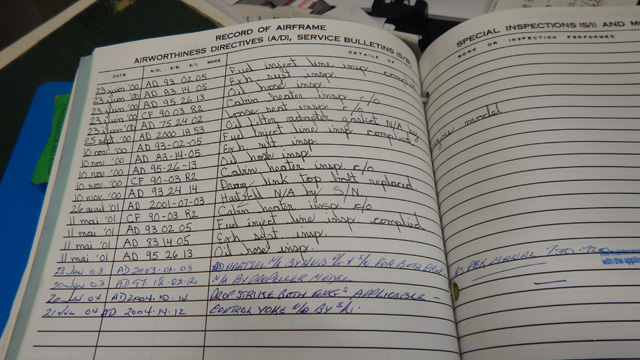 RECORD OF AIRFRAME
AIRWORTHINESS DIRECTIVES (A/D), SERVICE BULLETINS (S/B)
SPECIAL INSPECTIONS (S/I) AND M
DATE A/D, S/B, S/I, MODS DETAILS OF
WORK OR INSPECTION PERFORMED
23 juin '00 AD 93 02 05 Fuel inject line insp complied
23 juin '00 AD 83 14 05 Exh syst insp
23 juin '00 AD 95 26 13 Oil hose insp.
23 juin '00 CF 90 03 R2 Cabin heater insp c/o
23 juin '00 AD 75 24 02 insp. c/o
25 sept '00 AD 2000 18 53 Oil filter adapter gasket N/A by
10 nov '00 AD 93-02-05 Fuel Inject line insp complied
10 nov '00 AD 83-14-05 Exh syst insp
10 nov '00 AD 95-26-13 Oil hose insp.
10 nov '00 CF 90-03 R2 Cabin heater insp. c/o
10 nov '00 AD 93 24 14 link top bolt replaced
26 avril '01 AD 2001-07-03 N/A by S/N
11 mai '01 CF 90-03 R2 Cabin heater insp c/o
11 mai '01 AD 93 02 05 Fuel inject line insp complied
11 mai '01 AD 83 14 05 Exh syst insp.
11 mai '01 AD 95 26 13 Oil hose insp.
AD 2003-01-03 FOR BOTH
AD 97-18-02 R1 N/A BY PROPELLER MODEL
AD 2004-10-14 PROP STRIKE BOTH ENGS APPLICABLE -
21 04 AD 2004-14-12 CONTROL YOKE N/A BY S/N.
engine model
PER MANUAL
with the applic